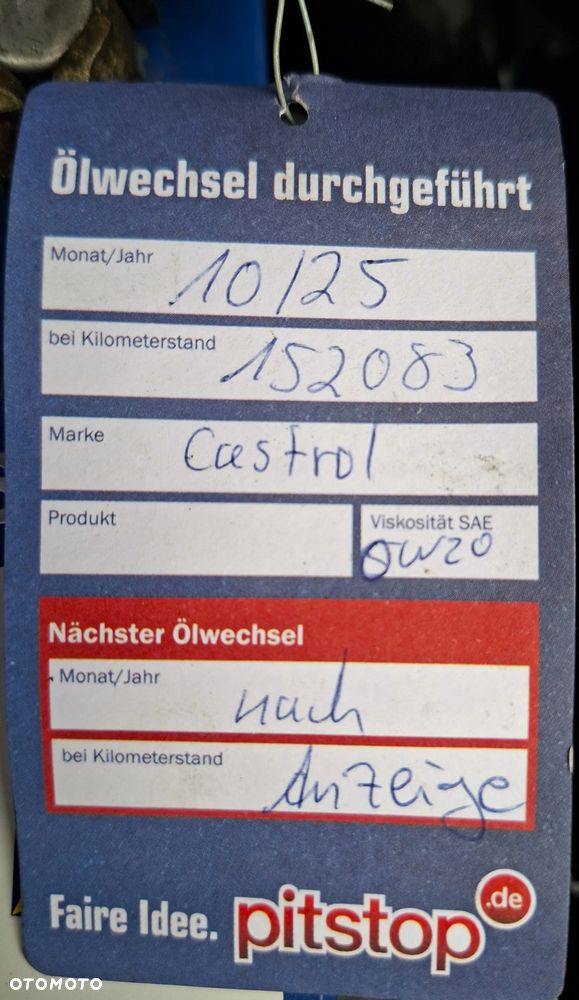 Ölwechsel durchgeführt
Monat/Jahr 10/25
bei Kilometerstand 152083
Marke Castrol
Produkt
Viskosität SAE
0W20
Nächster Ölwechsel
Monat/Jahr nach
bei Kilometerstand Anzeige
Faire Idee. pitstop.de
OTOMOTO